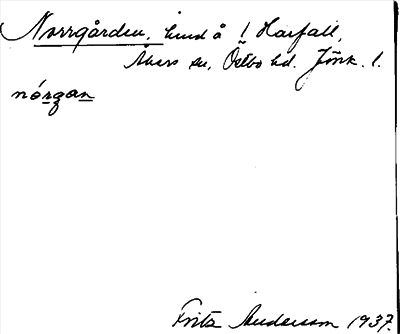 Norrgården, hmd å 1 Harfall,
Åkers sn, Östbo hd. Jönk. l.
nórgan
Fritz Andersson 1937.